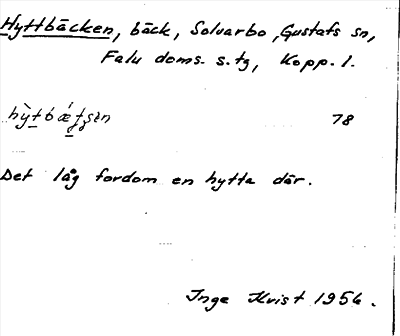 Hyttbäcken, bäck, Solvarbo, Gustafs sn,
Falu doms. s. tg, Kopp. l.
78
Det låg fordom en hytta där.
Inge Kvist 1954.